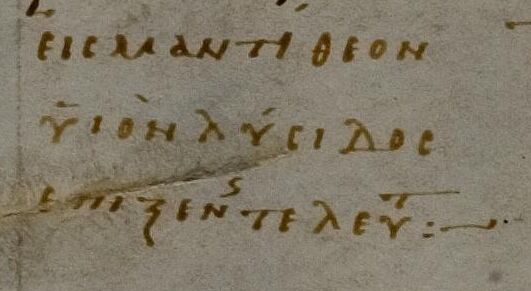 εισ μαντίθεον
ϋιὸν λύσιδοσ
επι ξενς τελευτ :—